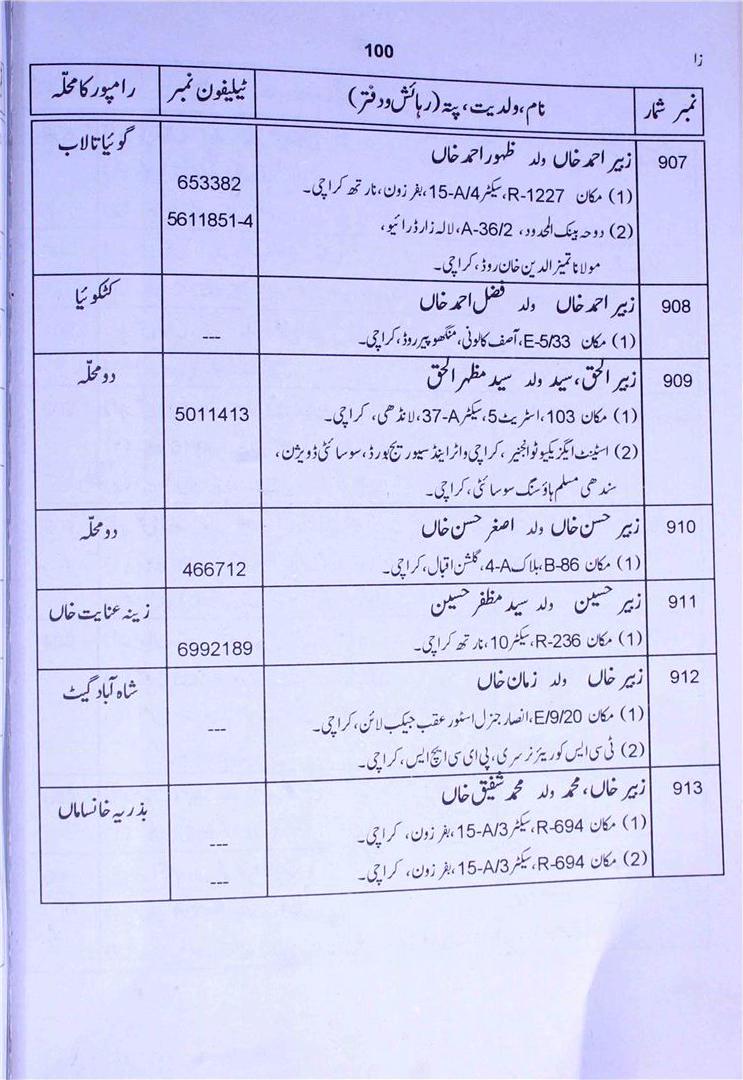 100
زا
نمبر شمار
نام، ولدیت، پتہ (رہائش و دفتر)
ٹیلیفون نمبر
رامپور کا محلّہ
907
زبیر احمد خاں ولد ظہور احمد خاں
گوئیا تالاب
(1) مکان R-1227، سیکٹر 15-A/4، بفر زون، نارتھ کراچی۔
653382
(2) دوحہ بینک المحدود، A-36/2، لالہ زار ڈرائیو،
5611851-4
مولانا تمیز الدین خان روڈ، کراچی۔
908
زبیر احمد خاں ولد فضل احمد خاں
کٹکوئیا
(1) مکان E-5/33، آصف کالونی، منگھو پیر روڈ، کراچی۔
---
909
زبیر الحق، سید ولد سید مظہر الحق
دو محلّہ
(1) مکان 103، اسٹریٹ 5، سیکٹر 37-A، لانڈھی، کراچی۔
5011413
(2) اسٹینٹ ایگزیکیوٹو انجنیر، کراچی واٹر اینڈ سیوریج بورڈ، سوسائٹی ڈویژن،
سندھی مسلم ہاؤسنگ سوسائٹی، کراچی۔
910
زبیر حسن خاں ولد اصغر حسن خاں
دو محلّہ
(1) مکان B-86، بلاک 4-A، گلشن اقبال، کراچی۔
466712
911
زبیر حسین ولد سید مظفر حسین
زینہ عنایت خاں
(1) مکان R-236، سیکٹر 10، نارتھ کراچی۔
6992189
912
زبیر خاں ولد زمان خاں
شاہ آباد گیٹ
(1) مکان E/9/20، انصار جنرل اسٹور عقب جیکب لائن، کراچی۔
---
(2) ٹی سی ایس کوریئر نرسری، پی ای سی ایچ ایس، کراچی۔
913
زبیر خاں، محمد ولد محمد شفیق خاں
بذریہ خانساماں
(1) مکان R-694، سیکٹر 15-A/3، بفر زون، کراچی۔
---
(2) مکان R-694، سیکٹر 15-A/3، بفر زون، کراچی۔
---